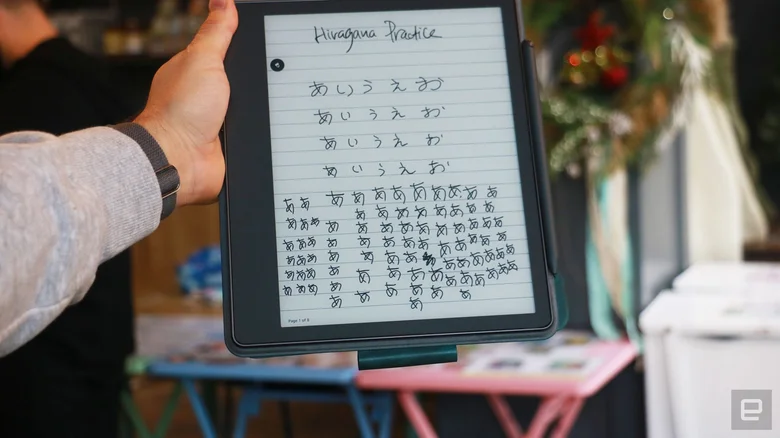 Hiragana Practice
あ い う え お
あ い う え お
あ い う え お
あ い う え お
あ あ あ あ あ あ あ あ あ あ あ
あ あ あ あ あ あ あ あ
あ あ あ あ あ あ あ あ あ あ あ あ あ
あ あ あ あ あ あ あ あ あ あ あ あ あ
あ あ あ あ あ あ あ あ あ あ あ あ
あ あ あ あ あ あ あ あ あ あ あ あ あ あ
あ あ あ あ あ あ あ あ あ
あ あ